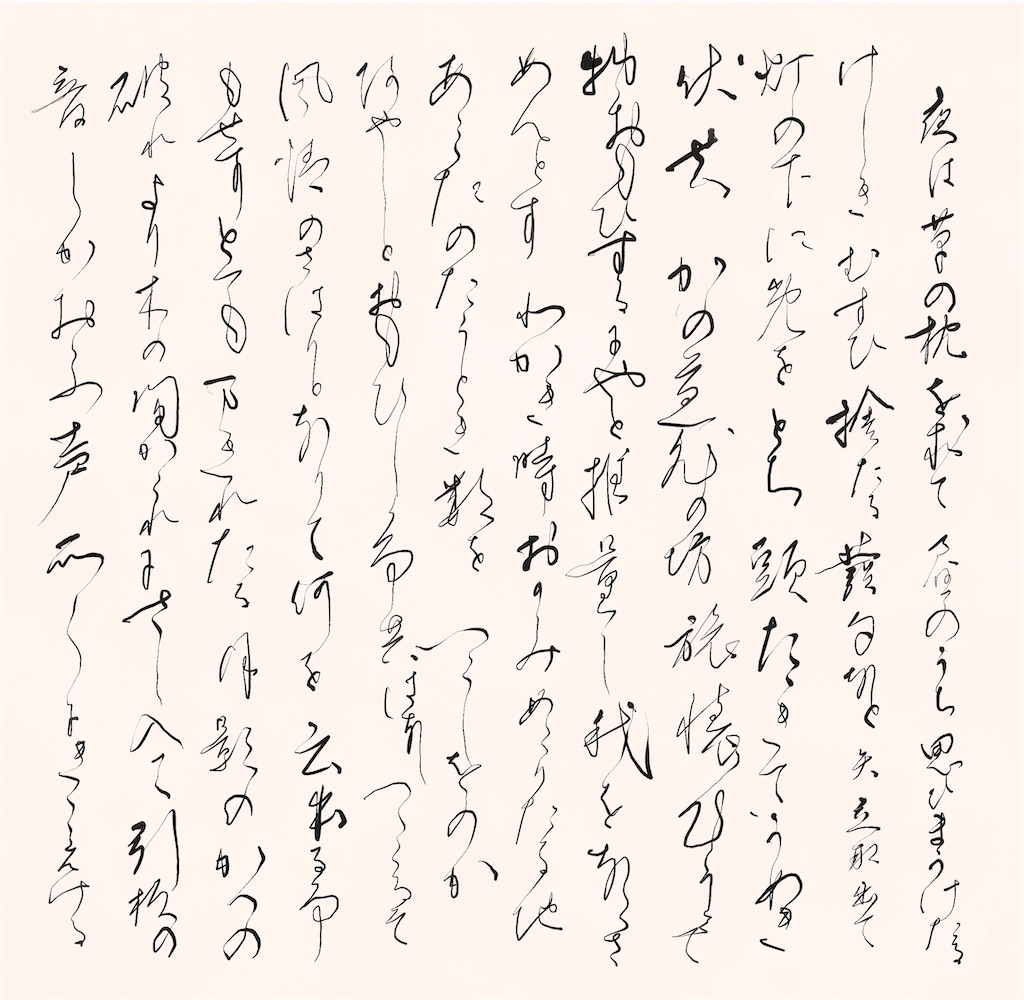 夜は草の枕を求て昼のうち思ひまうけたる
けしきむすひ捨たる發句なと矢立取出て
灯の下に めをとち頭たゝきてうめき
伏せはかの道心の坊旅懐心うくて
物おもひするにやと推量し我をなくさ
めんとすわかき時おかみめくりたる地
あみたのたうとき数をつくしをのか
あやしとおもひし事共はなしつゝくるそ
風情のさはりとなりて何を云出る事
もせすとてもまきれたる月影のかへの
破れより木の間かくれにさし入て引板の
音しかおふ声所〱にきこえける